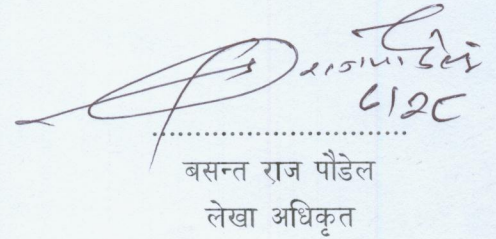 ८/२८
बसन्त राज पौडेल
लेखा अधिकृत